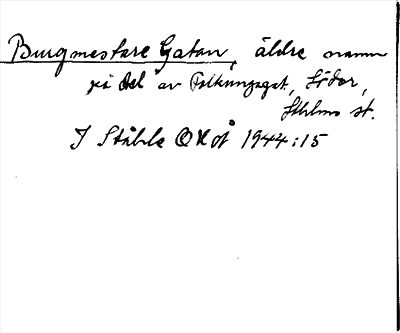 Burgmestare Gatan, äldre namn
på del av Folkungagat, Söder,
Sthlms st.
I Ståhle OXÅ 1944:15